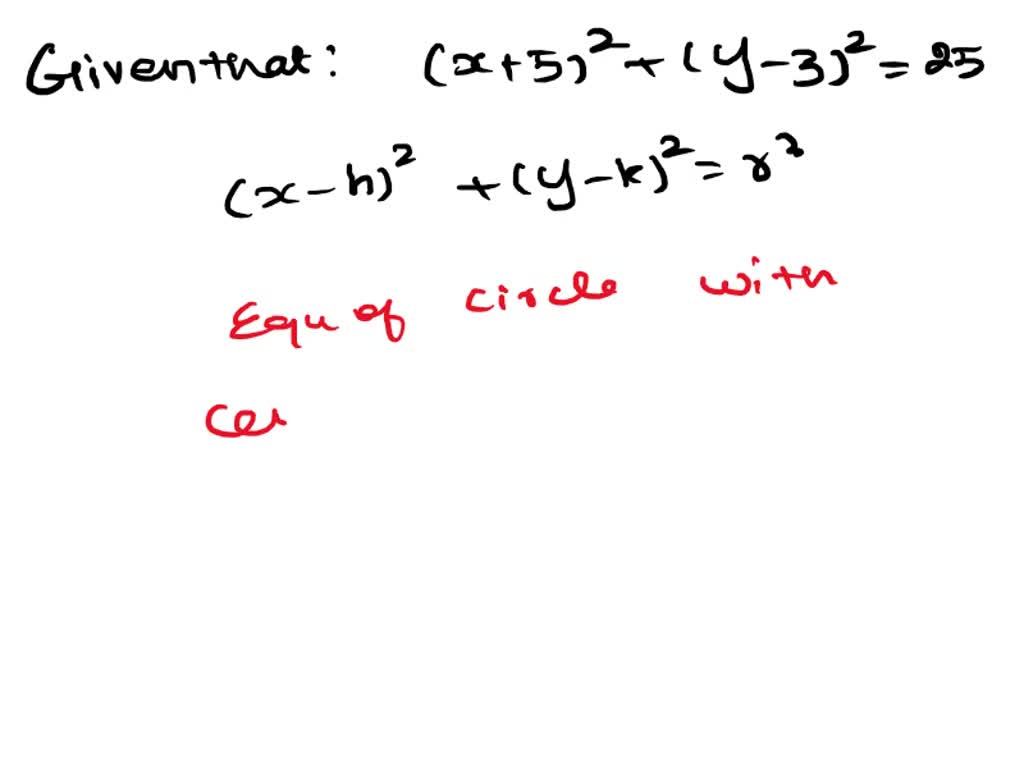 Given that: (x+5)² + (y-3)² = 25
(x-h)² + (y-k)² = r²
Equ of circle with
Cen